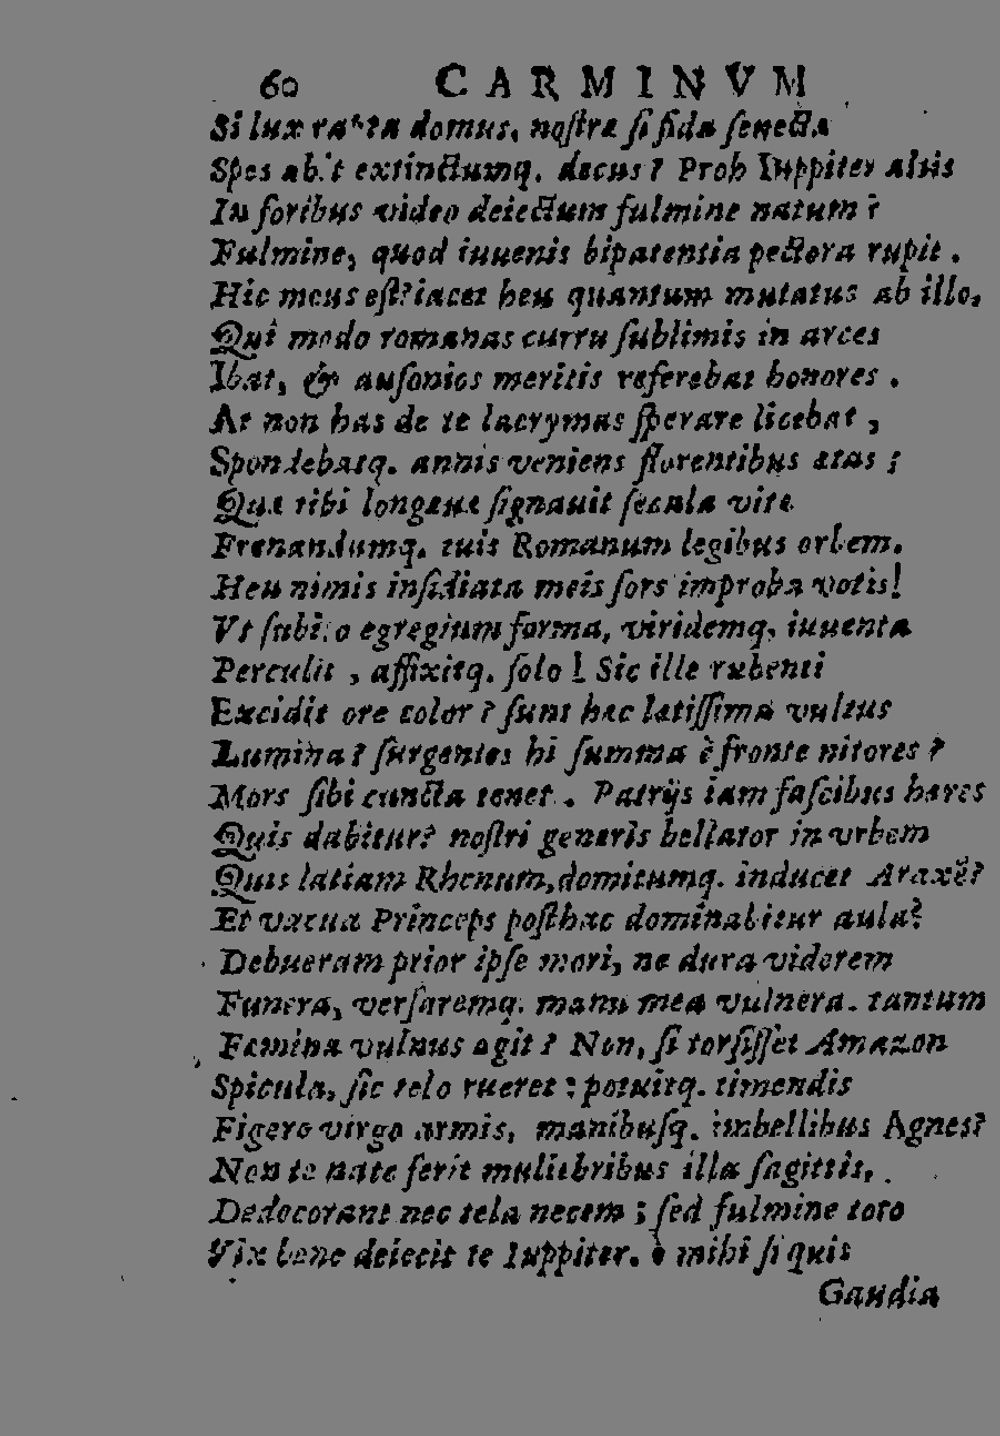 60 CARMINVM
Si lux tanta domus, nostræ si fida senectæ
Spes abit extinctumq. decus? Proh Iuppiter altis
In foribus video deiectum fulmine natum?
Fulmine, quod iuuenis bipatentia pectora rupit.
Hic meus est? iacet heu quantum mutatus ab illo,
Qui modo romanas curru sublimis in arces
Ibat, & ausonios meritis referebat honores.
At non has de te lacrymas sperare licebat,
Spondebatq. annis veniens florentibus ætas;
Quæ tibi longæuæ signauit secula vitæ
Frenandumq. tuis Romanum legibus orbem.
Heu nimis insidiata meis sors improba votis!
Vt subito egregium forma, viridemq. iuuenta
Perculit, affixitq. solo! Sic ille rubenti
Excidit ore color? sunt hæc lætissima vultus
Lumina? surgentes hi summa è fronte nitores?
Mors sibi cuncta tenet. Patrijs iam fascibus hæres
Quis dabitur? nostri generis bellator in vrbem
Quis latiam Rhenum, domitumq. inducet Araxẽ?
Et vacua Princeps posthac dominabitur aula?
Debueram prior ipse mori, ne dura viderem
Funera, versaremq. manu mea vulnera. tantum
Femina vulnus agit? Non, si torsisset Amazon
Spicula, sic telo rueret; potuitq. timendis
Figere virgo armis, manibusq. imbellibus Agnes?
Non te nate ferit muliebribus illa sagittis,
Dedecorant nec tela necem; sed fulmine toto
Vix bene deiecit te Iuppiter. ò mihi si quis
Gaudia